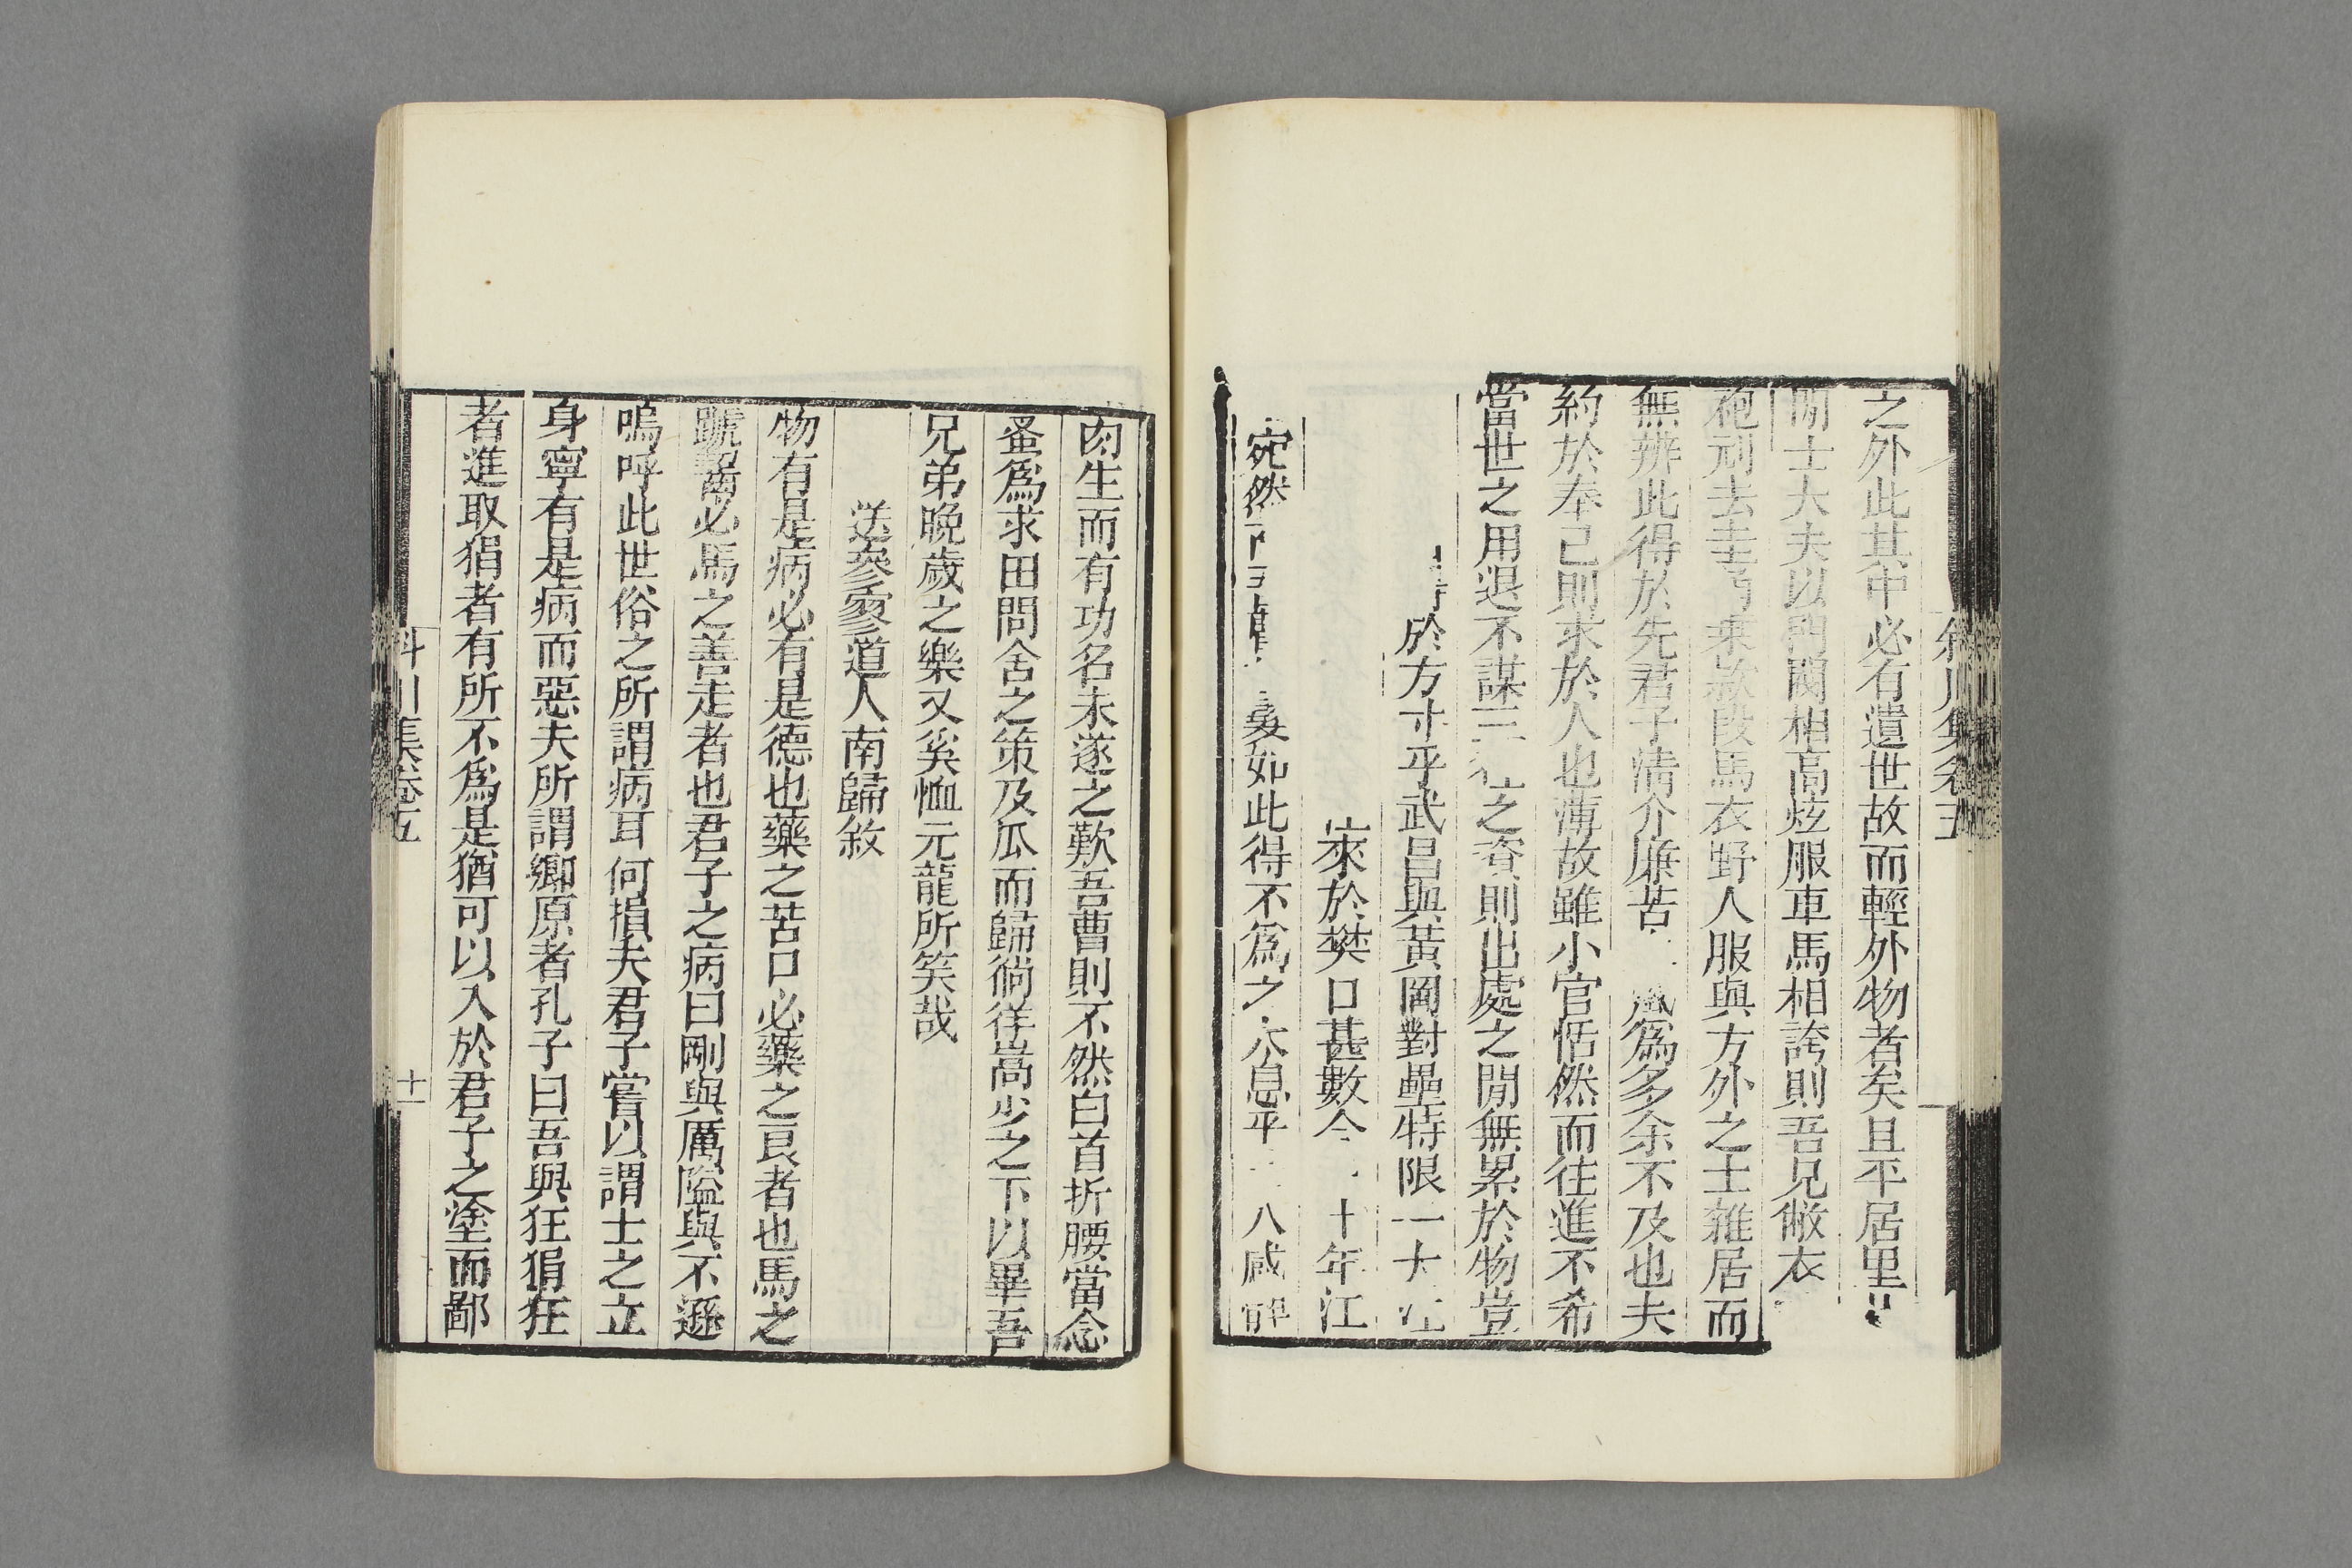 之外此其中必有遺世故而輕外物者矣且平居里
閈士大夫以閥閱相高炫服車馬相誇則吾兄敝衣
袍刓去圭乘款段馬衣野人服與方外之士雜居而
無辨此得於先君子清介廉苦爲多余不及也夫
約於奉己則求於人也薄故雖小官恬然而往進不希
當世之用退不謀三之資則出處之閒無累於物豈
於方寸乎武昌與黃岡對壘特限一大江
來於樊口甚數今十年江
宛然如此得不爲之太息乎八咸
肉生而有功名未遂之歎吾曹則不然白首折腰當念
蚤爲求田問舍之策及瓜而歸徜徉嵩少之下以畢吾
兄弟晚歲之樂又奚恤元龍所笑哉
送參寥道人南歸敘
物有是病必有是德也藥之苦口必藥之良者也馬之
蹏齧必馬之善走者也君子之病曰剛與厲隘與不遜
嗚呼此世俗之所謂病耳何損夫君子嘗以謂士之立
身寧有是病而惡夫所謂鄉原者孔子曰吾與狂狷狂
者進取狷者有所不爲是猶可以入於君子之塗而鄙
斜川集卷五
十一